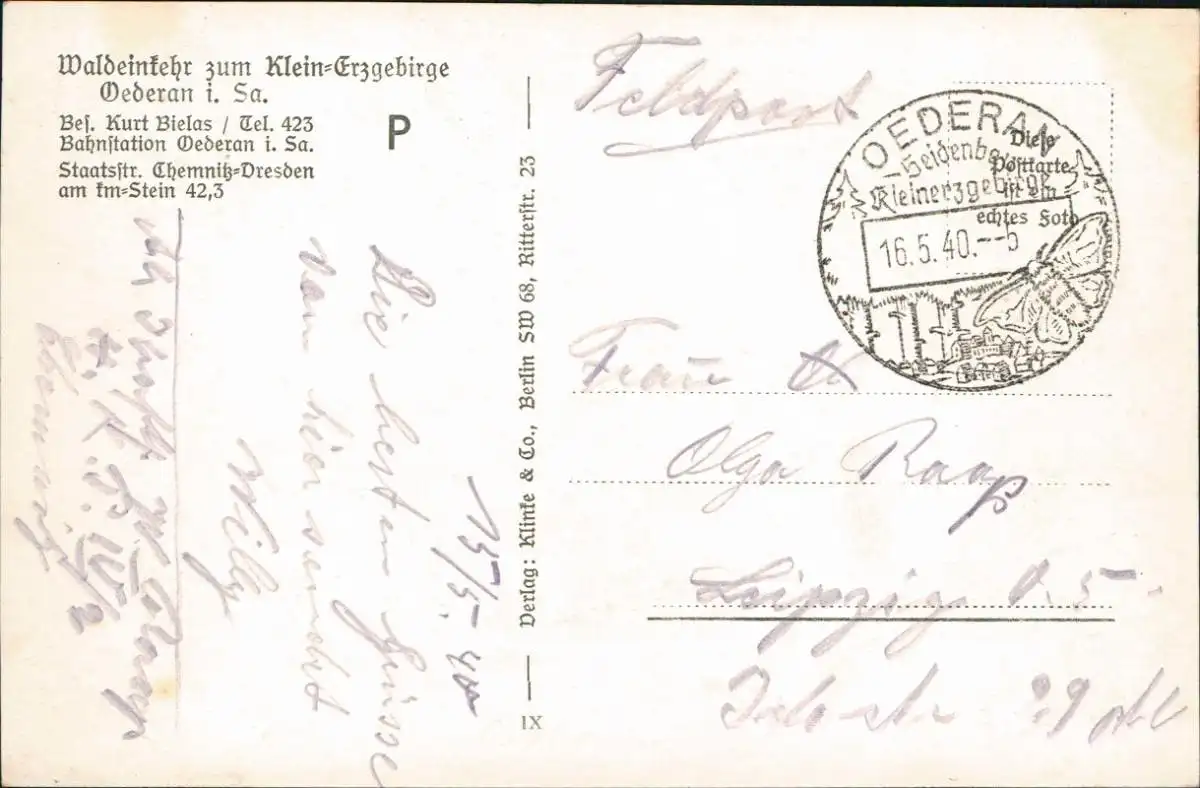 Waldeinkehr zum Klein-Erzgebirge
Oederan i. Sa.
Bes. Kurt Bielas / Tel. 423
Bahnstation Oederan i. Sa.
Staatsstr. Chemnitz-Dresden
am km-Stein 42,3
P
15/5. 40
Die besten Grüsse
von hier sendet
Willy
Verlag: Klinke & Co., Berlin SW 68, Ritterstr. 23
IX
Feldpost
OEDERAN
Seidenbau
Kleinerzgebirge
16.5.40.--5
Diese
Postkarte
ist ein
echtes Foto
Frau
Olga Raap
Leipzig O. 5
29